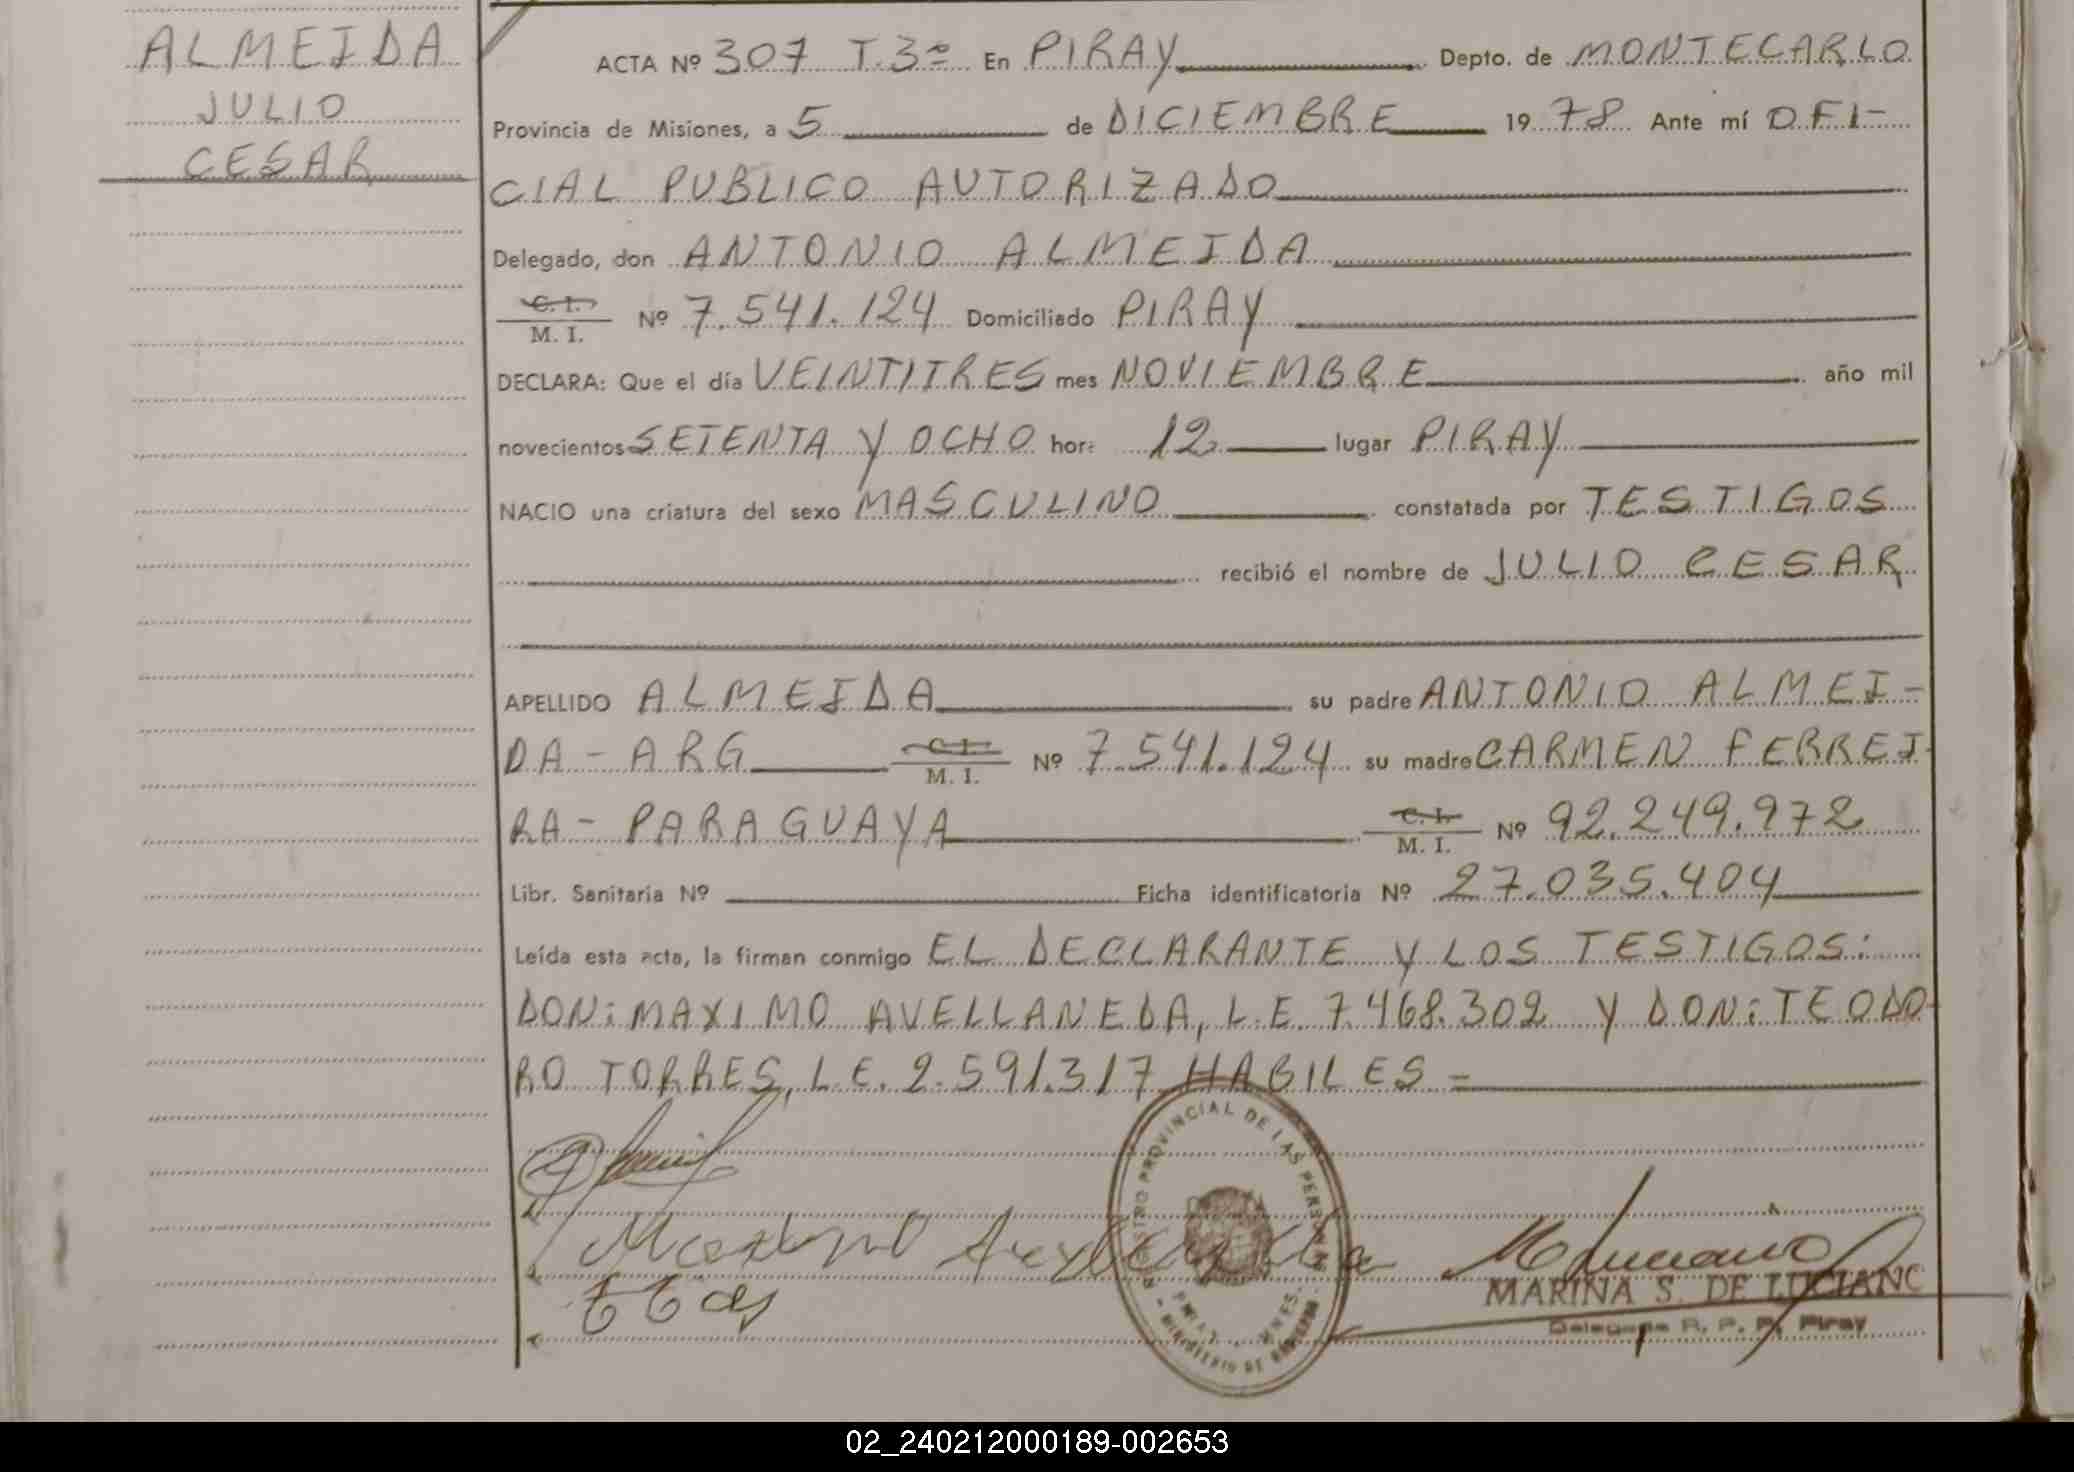 ALMEIDA
JULIO
CESAR
ACTA Nº 307 T. 3º En PIRAY Depto. de MONTECARLO
Provincia de Misiones, a 5 de DICIEMBRE 1978 Ante mí OFI-
CIAL PUBLICO AUTORIZADO
Delegado, don ANTONIO ALMEIDA
C. I.
M. I. Nº 7.541.124 Domiciliado PIRAY
DECLARA: Que el día VEINTITRES mes NOVIEMBRE año mil
novecientos SETENTA Y OCHO hora 12 lugar PIRAY
NACIO una criatura del sexo MASCULINO constatada por TESTIGOS
recibió el nombre de JULIO CESAR
APELLIDO ALMEIDA su padre ANTONIO ALMEI-
DA - ARG C. I. M. I. Nº 7.541.124 su madre CARMEN FERREI-
RA - PARAGUAYA C. I. M. I. Nº 92.249.972
Libr. Sanitaria Nº Ficha identificatoria Nº 27.035.404
Leída esta acta, la firman conmigo EL DECLARANTE Y LOS TESTIGOS:
DON: MAXIMO AVELLANEDA, L.E. 7.468.302 Y DON: TEODO-
RO TORRES, L.E. 2.591.317 HABILES =
REGISTRO PROVINCIAL DE LAS PERSONAS
MARINA S. DE LUCIANO
Delegada R. P. P. Piray
02_240212000189-002653